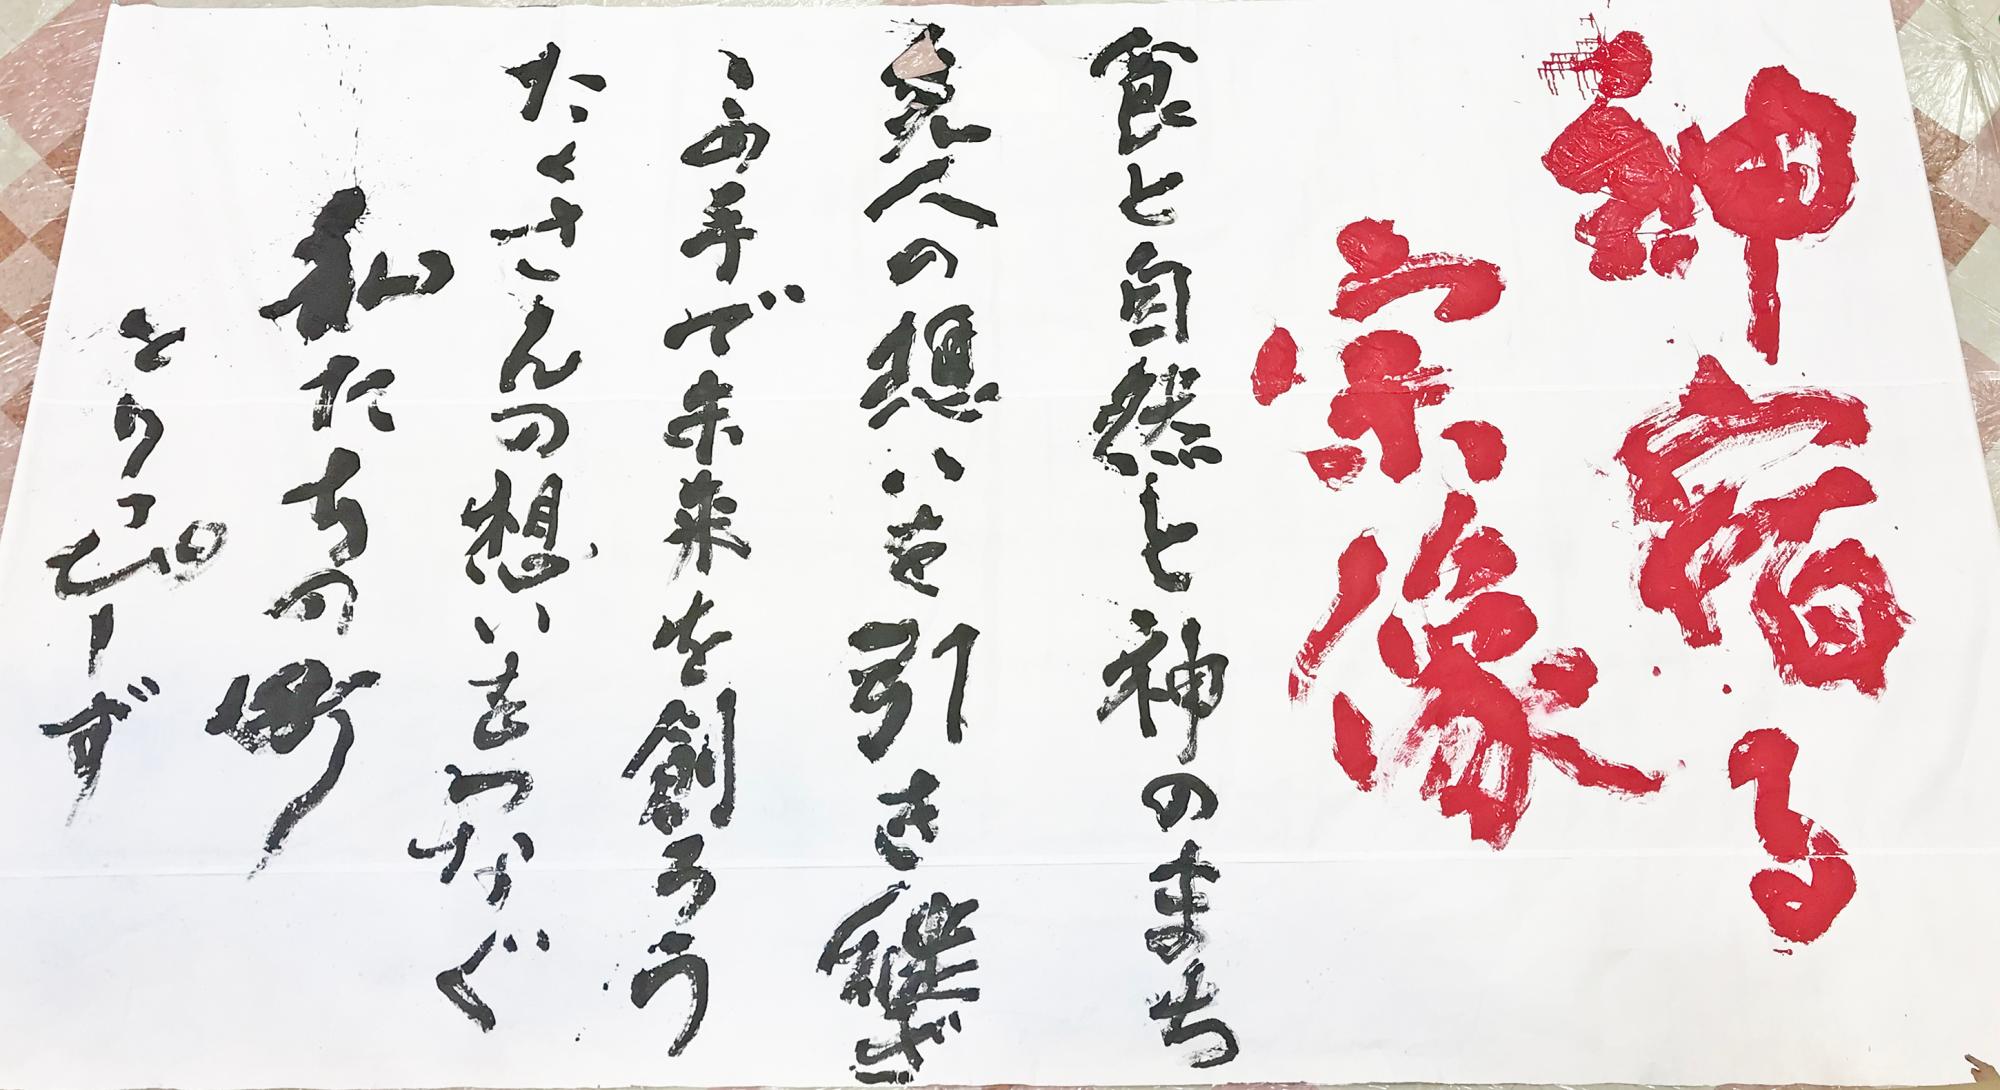 神宿る
宗像
食と自然と神のまち
先人の想いを引き継ぎ
この手で未来を創ろう
たくさんの想いをつなぐ
私たちの町
とりこぴーず